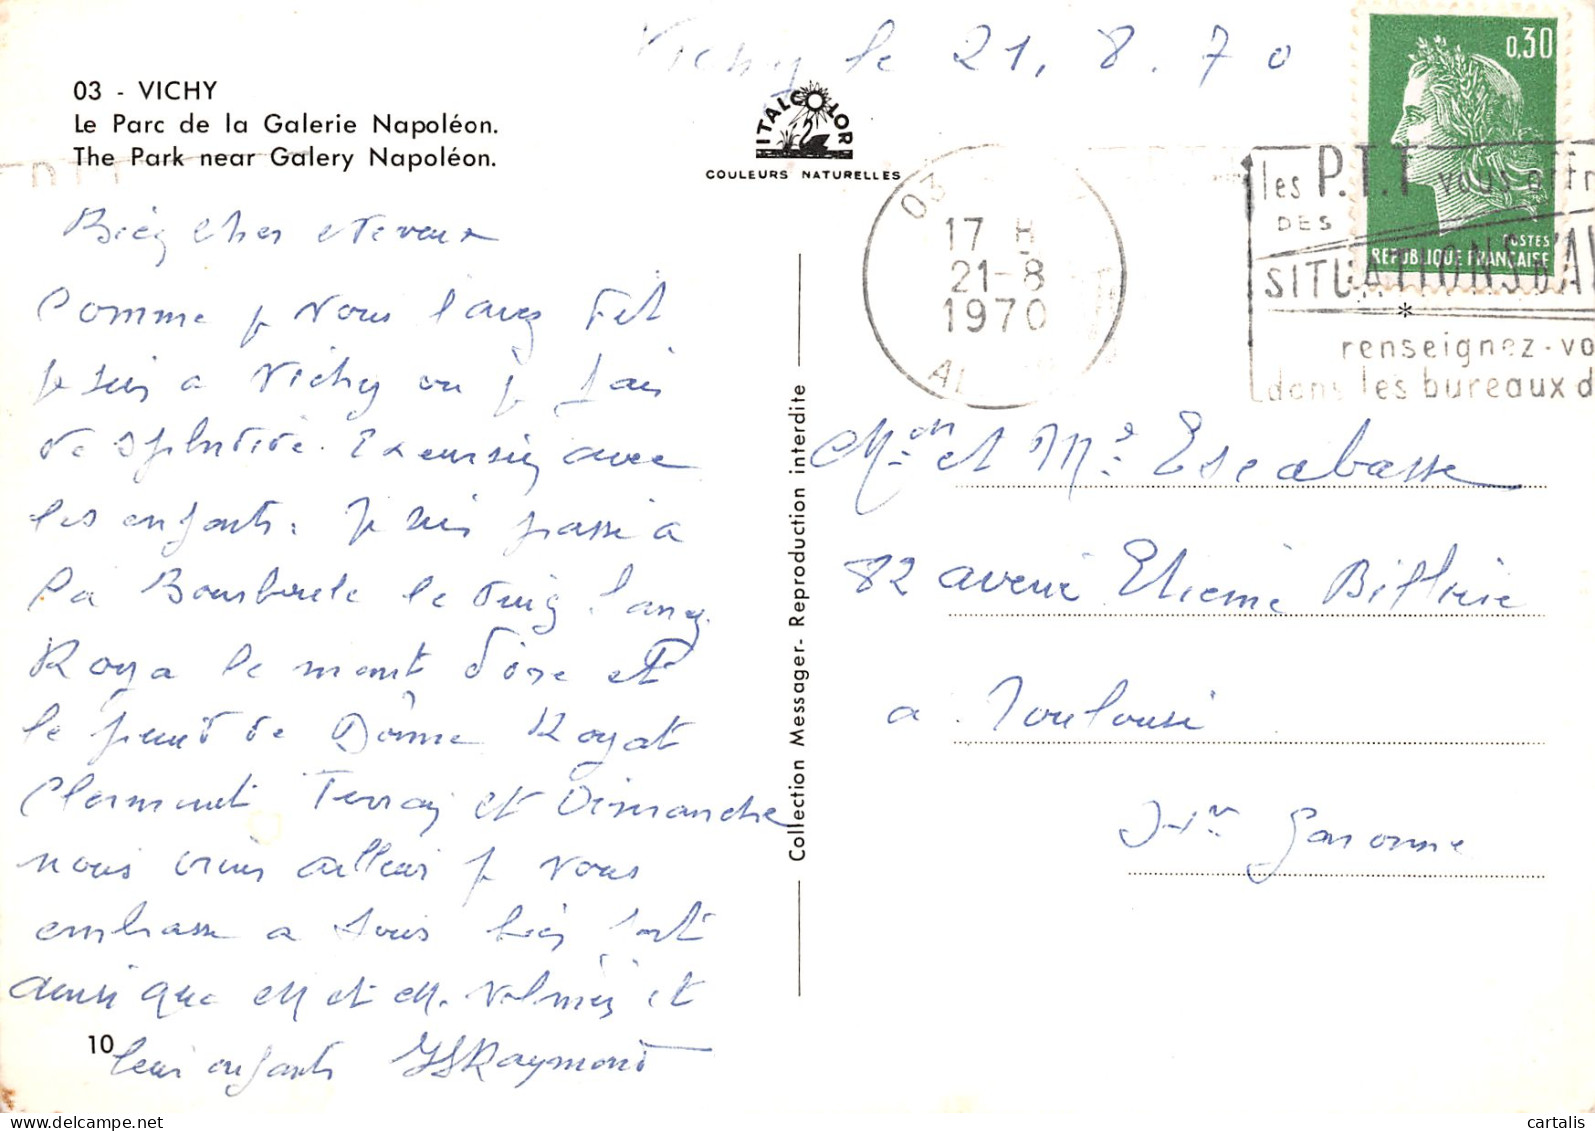 Vichy le 21. 8. 70
03 - VICHY
Le Parc de la Galerie Napoléon.
The Park near Galery Napoléon.
ITALCOLOR
COULEURS NATURELLES
0,30
POSTES
REPUBLIQUE FRANÇAISE
03
17 H
21-8
1970
AL
les P.T.T vous offr
DES
SITUATIONS D'AV
renseignez-vo
dans les bureaux d
Bien chers
Comme je vous l'avez dit
je suis a Vichy ou je fais
de splendide. Excursion avec
les enfants. Je suis passé a
la Bourboule le
Roya le mont d'ore et
le puid de Dôme Royat
Clermont Ferran et Dimanche
nous ailleur je vous
embrasse a tous bien fort
ainsi que M et M. et
leur enfants Raymond
10
Collection Messager - Reproduction interdite
Mon et Me Escabasse
82 avenue Etienne Billière
a Toulouse
Hte Garonne
cartalis